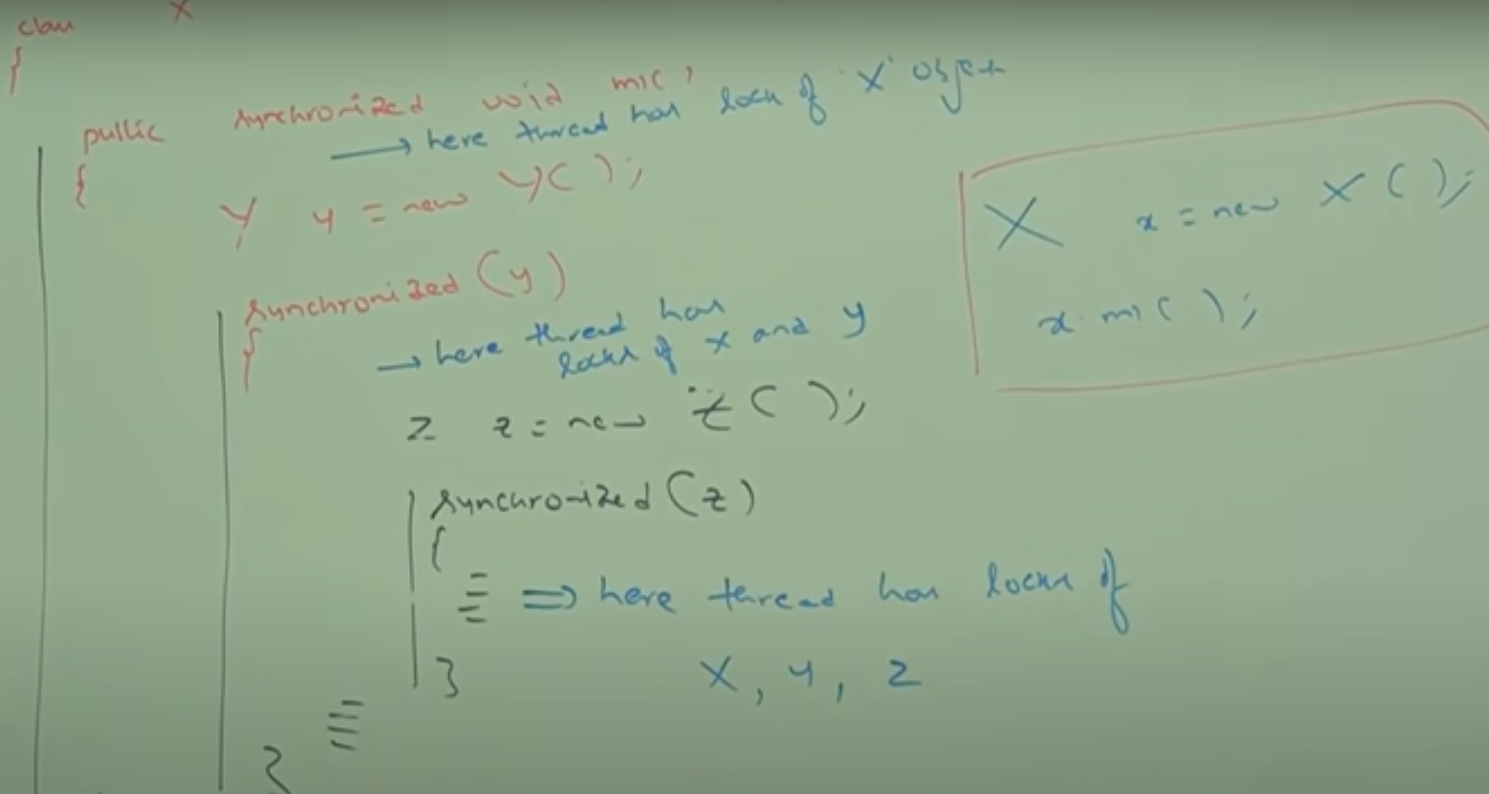 class X
{
public synchronized void m1( )
→ here thread has lock of 'X' object
{
Y y = new Y( );
synchronized (y)
{
→ here thread has
locks of X and Y
Z z = new Z( );
synchronized (z)
{
⇒ here thread has locks of
X, Y, Z
}
}
X x = new X( );
x.m1( );